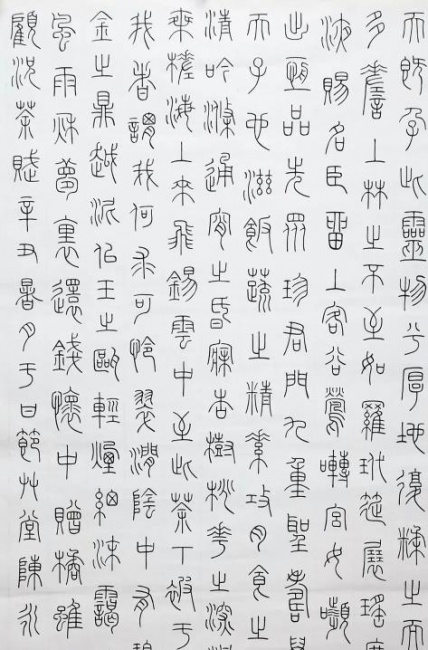 天既孕此靈物兮厚地復糅之而
多嗟上林之不至如羅玳筵展瑤
液賜名臣留上客谷鶯囀宮女嚬
出恆品先眾珍君門九重聖壽
天子也滋飯蔬之精素攻肉食之
清吟滌通宵之昏寐杏樹桃花之深
乘槎海上來飛錫雲中至此茶下被于
我者謂我何求可憐翠澗陰中有碧
金之鼎越泥似玉之甌輕煙細沫靄
風雨秋夢裏還錢懷中贈橘雖
顧況茶賦辛丑暑月于曰節艸堂陳永